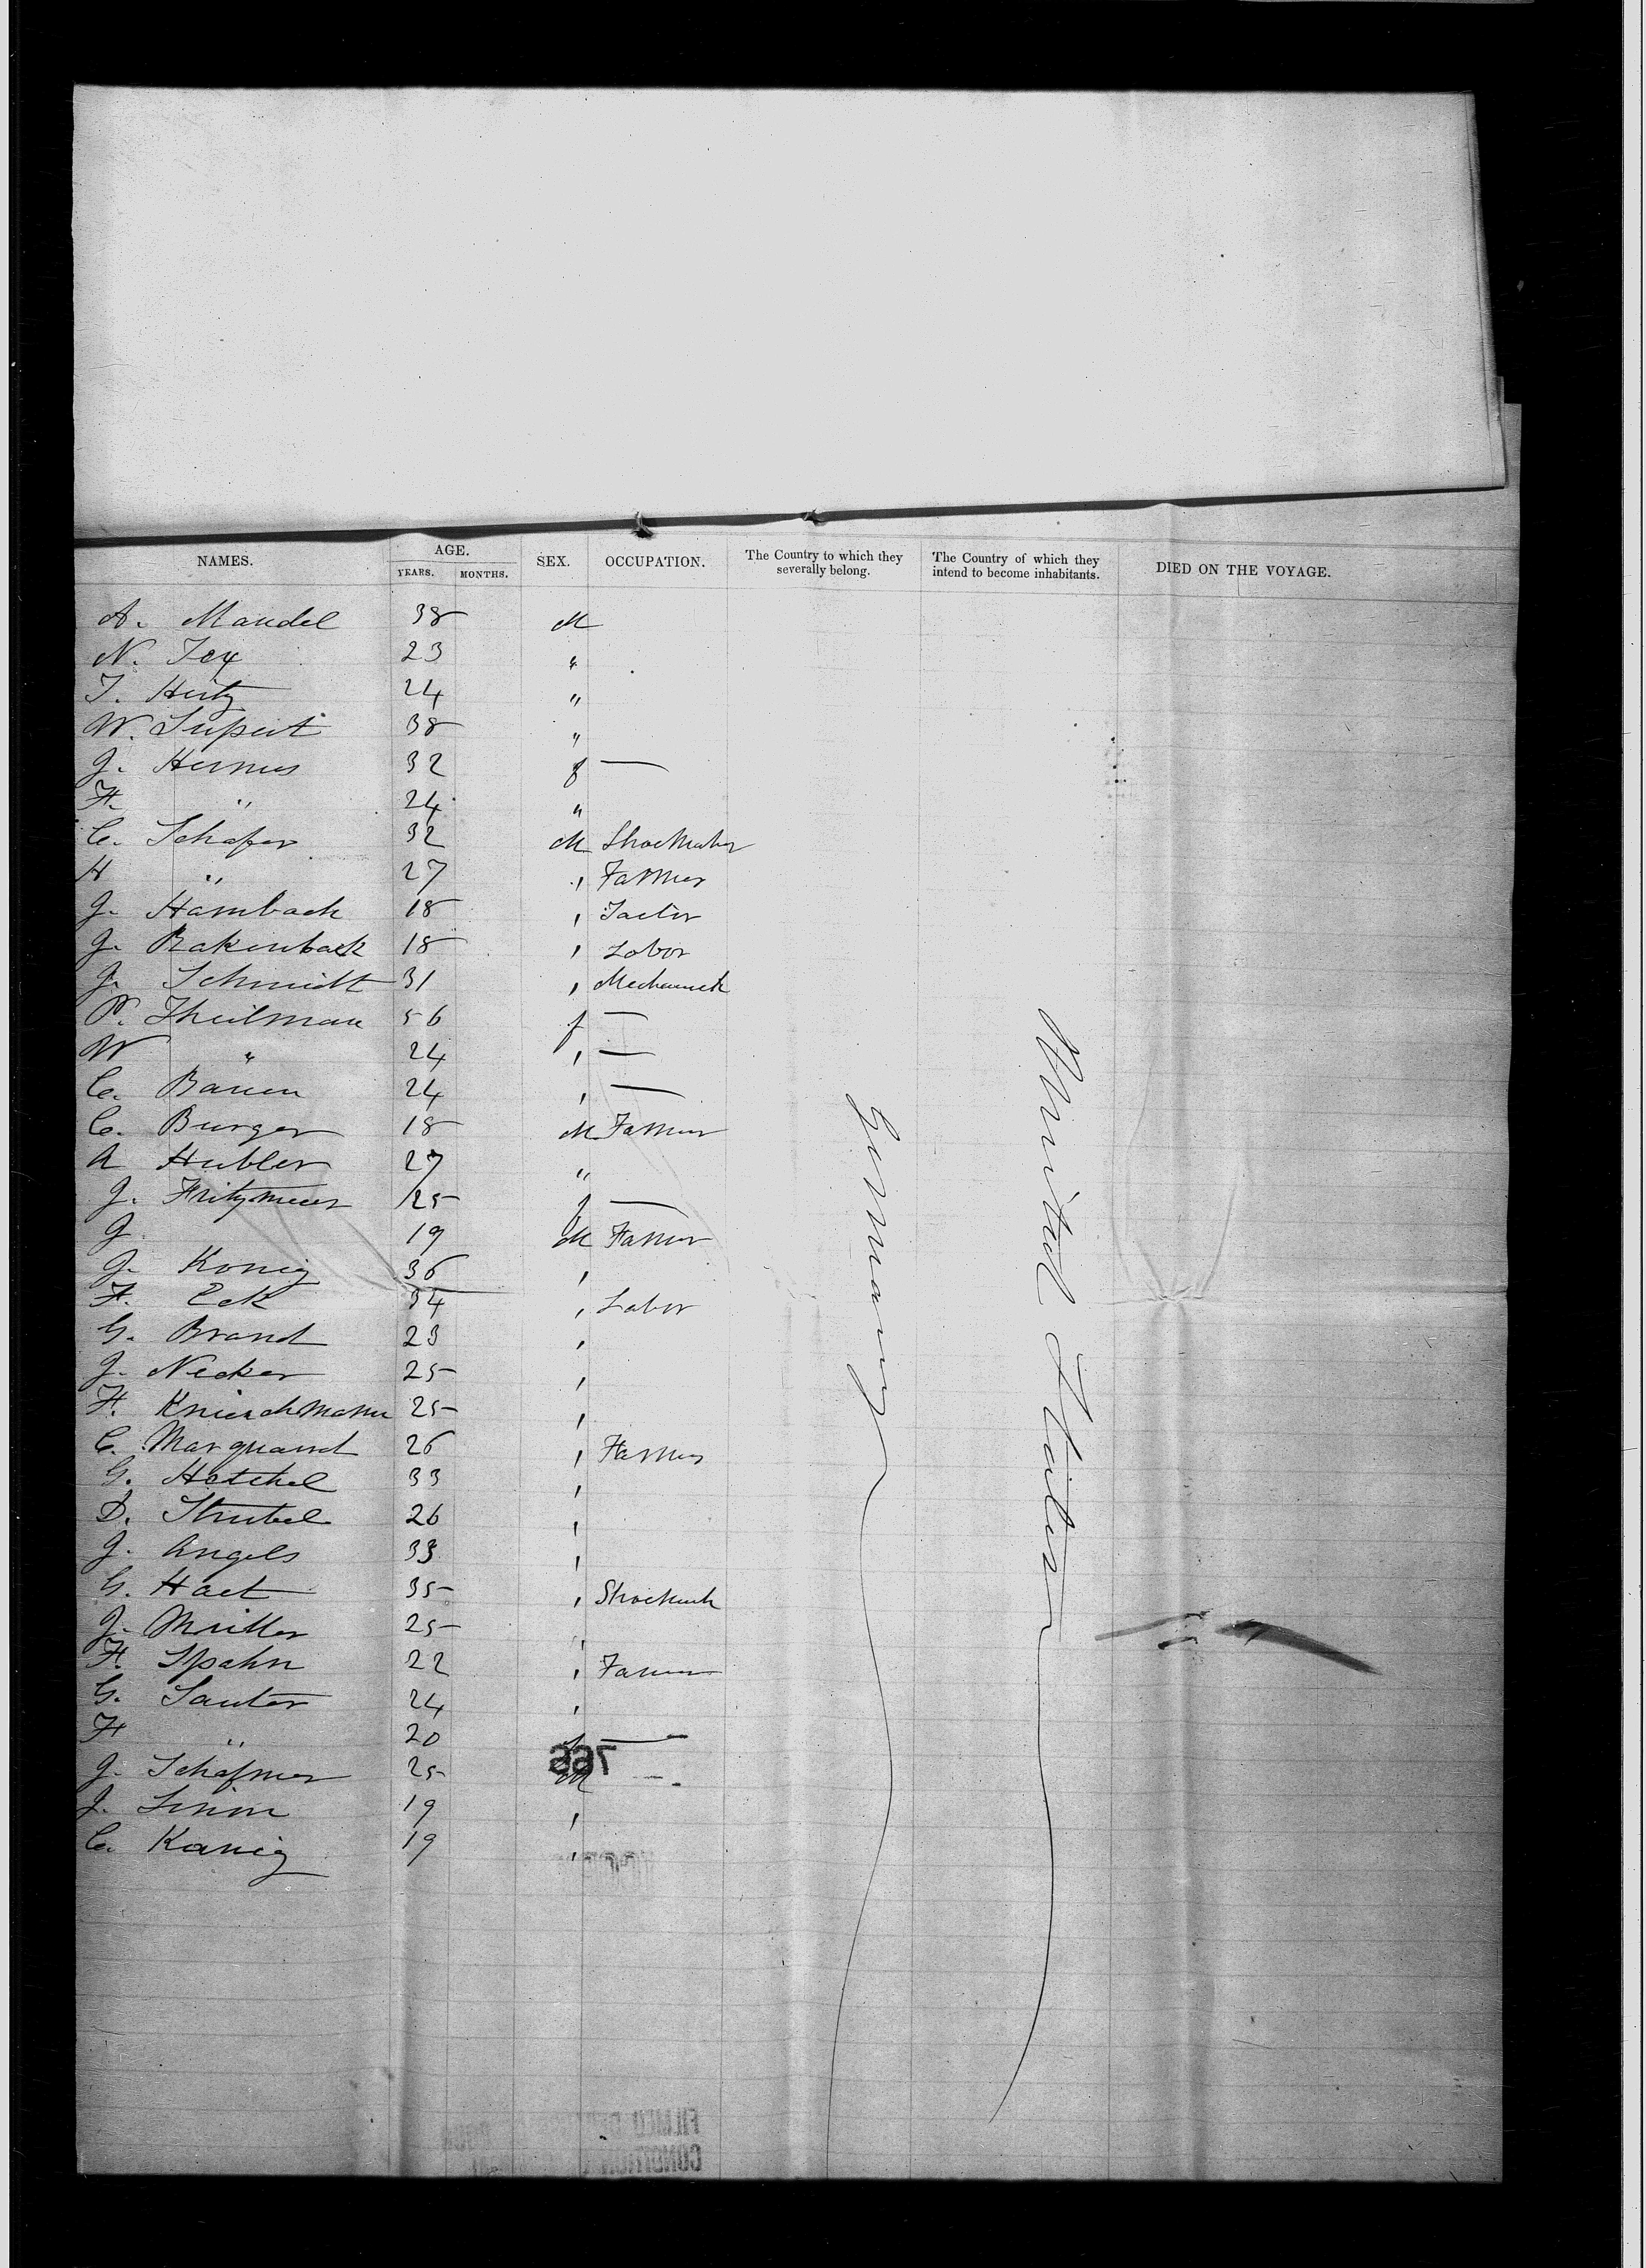 NAMES. AGE. SEX. OCCUPATION. The Country to which they severally belong. The Country of which they intend to become inhabitants. DIED ON THE VOYAGE.
YEARS. MONTHS.
A. Mandel 38 M
N. Fox 23 "
T. Hertz 24 "
W. 38 "
J. Hermes 32 f —
F. " 24 "
C. Schafer 32 M Shoemaker
H " 27 " Farmer
J. Hambach 18 "
J. Rakenback 18 " Labor
J. Schmidt 31 " Mechanick
P. Theilman 56 f —
W " 24 " —
C. Bauen 24 " —
C. Burger 18 M Farmer
A Hubler 27 "
J. Fritzmeier 25 f —
J 19 M Farmer
J. Konig 36 "
F. Eck 34 " Labor
G. Brand 23 "
J. Necker 25 "
F. 25 "
C. Marquand 26 " Farmer
G. Hatchel 33 "
D. Strubel 26 "
J. Angels 33 "
G. Hact 35 "
J. Muller 25 "
F. Spahn 22 " Farmer
G. Sauter 24 "
F " 20 —
J. Schafner 25 M
J. Simon 19 "
C. Kanig 19 "
Germany
United States